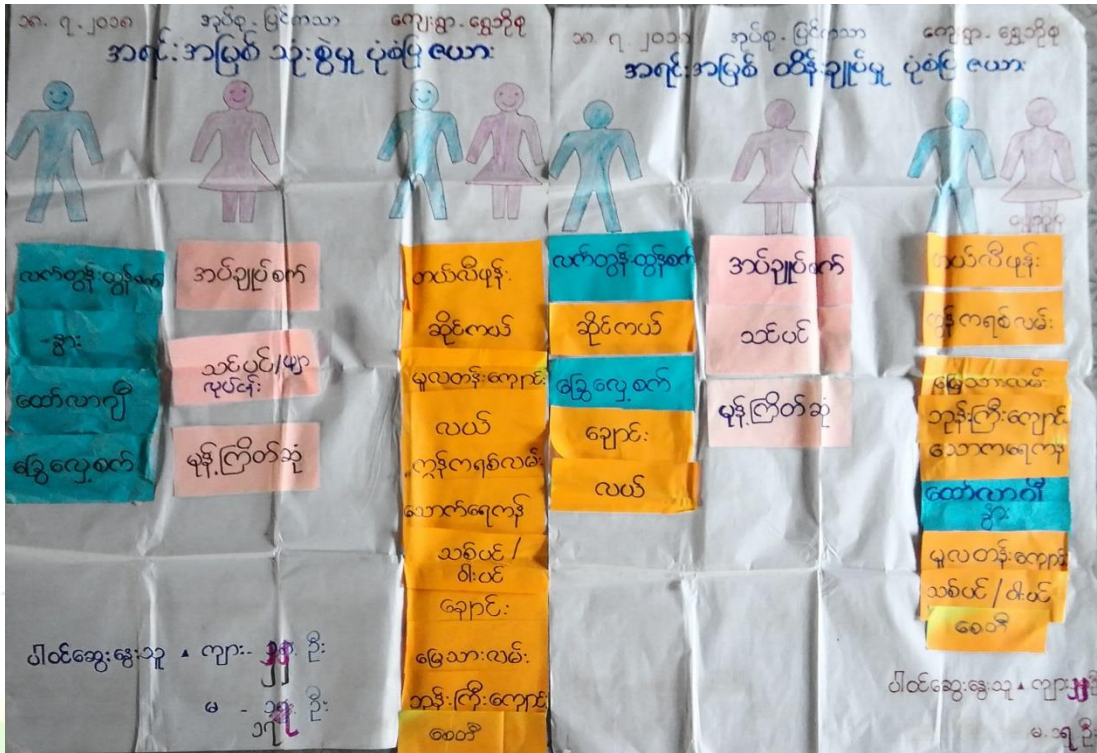 ၁၈. ၇. ၂၀၁၈ အုပ်စု - ပြင်ကသာ ကျေးရွာ - ရွှေဘိုစု
အရင်းအမြစ် သုံးစွဲမှု ပုံစံပြ ဇယား
လက်တွန်းထွန်စက်
-နွား
ထော်လာဂျီ
ခြွေလှေ့စက်
အပ်ချုပ်စက်
သင်ပင်/ဖျာ
လုပ်ငန်း
မုန့်ကြိတ်ဆုံ
တယ်လီဖုန်း
ဆိုင်ကယ်
မူလတန်းကျောင်း
လယ်
ကွန်ကရစ်လမ်း
သောက်ရေကန်
သစ်ပင် /
ဝါးပင်
ချောင်း
မြေသားလမ်း
ဘုန်းကြီးကျောင်း
စေတီ
ပါဝင်ဆွေးနွေးသူ ▲ ကျား- ဦး
မ - ၁၇ ဦး
၁၈. ၇. ၂၀၁၈ အုပ်စု - ပြင်ကသာ ကျေးရွာ - ရွှေဘိုစု
အရင်းအမြစ် ထိန်းချုပ်မှု ပုံစံပြ ဇယား
လက်တွန်းထွန်စက်
ဆိုင်ကယ်
ခြွေလှေ့စက်
ချောင်း
လယ်
အပ်ချုပ်စက်
သင်ပင်
မုန့်ကြိတ်ဆုံ
တယ်လီဖုန်း
ကွန်ကရစ်လမ်း
မြေသားလမ်း
ဘုန်းကြီးကျောင်း
သောက်ရေကန်
ထော်လာဂျီ
နွား
မူလတန်းကျောင်း
သစ်ပင် / ဝါးပင်
စေတီ
ပါဝင်ဆွေးနွေးသူ ▲ ကျား
မ. ၁၇ ဦး